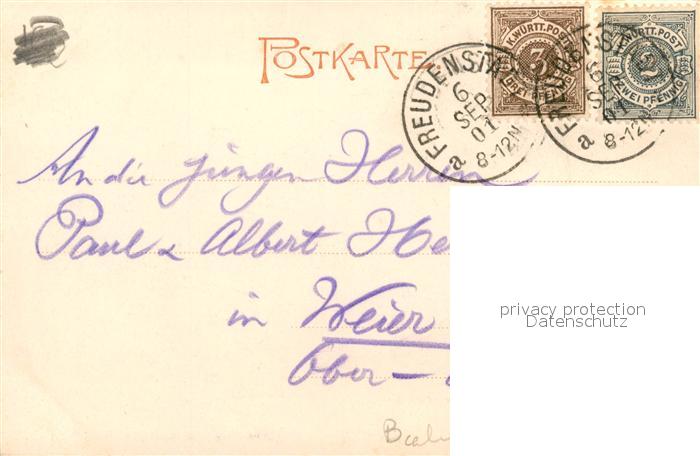 POSTKARTE.
K. WÜRTT. POST
3
DREI PFENNIG
K. WÜRTT. POST
2
ZWEI PFENNIG
FREUDENSTA
6
SEP
01
8-12N
a
FREUDENST
6
SEP
01
8-12N
a
An die jungen Herren
Paul & Albert He
in Weier
Ober-
privacy protection
Datenschutz